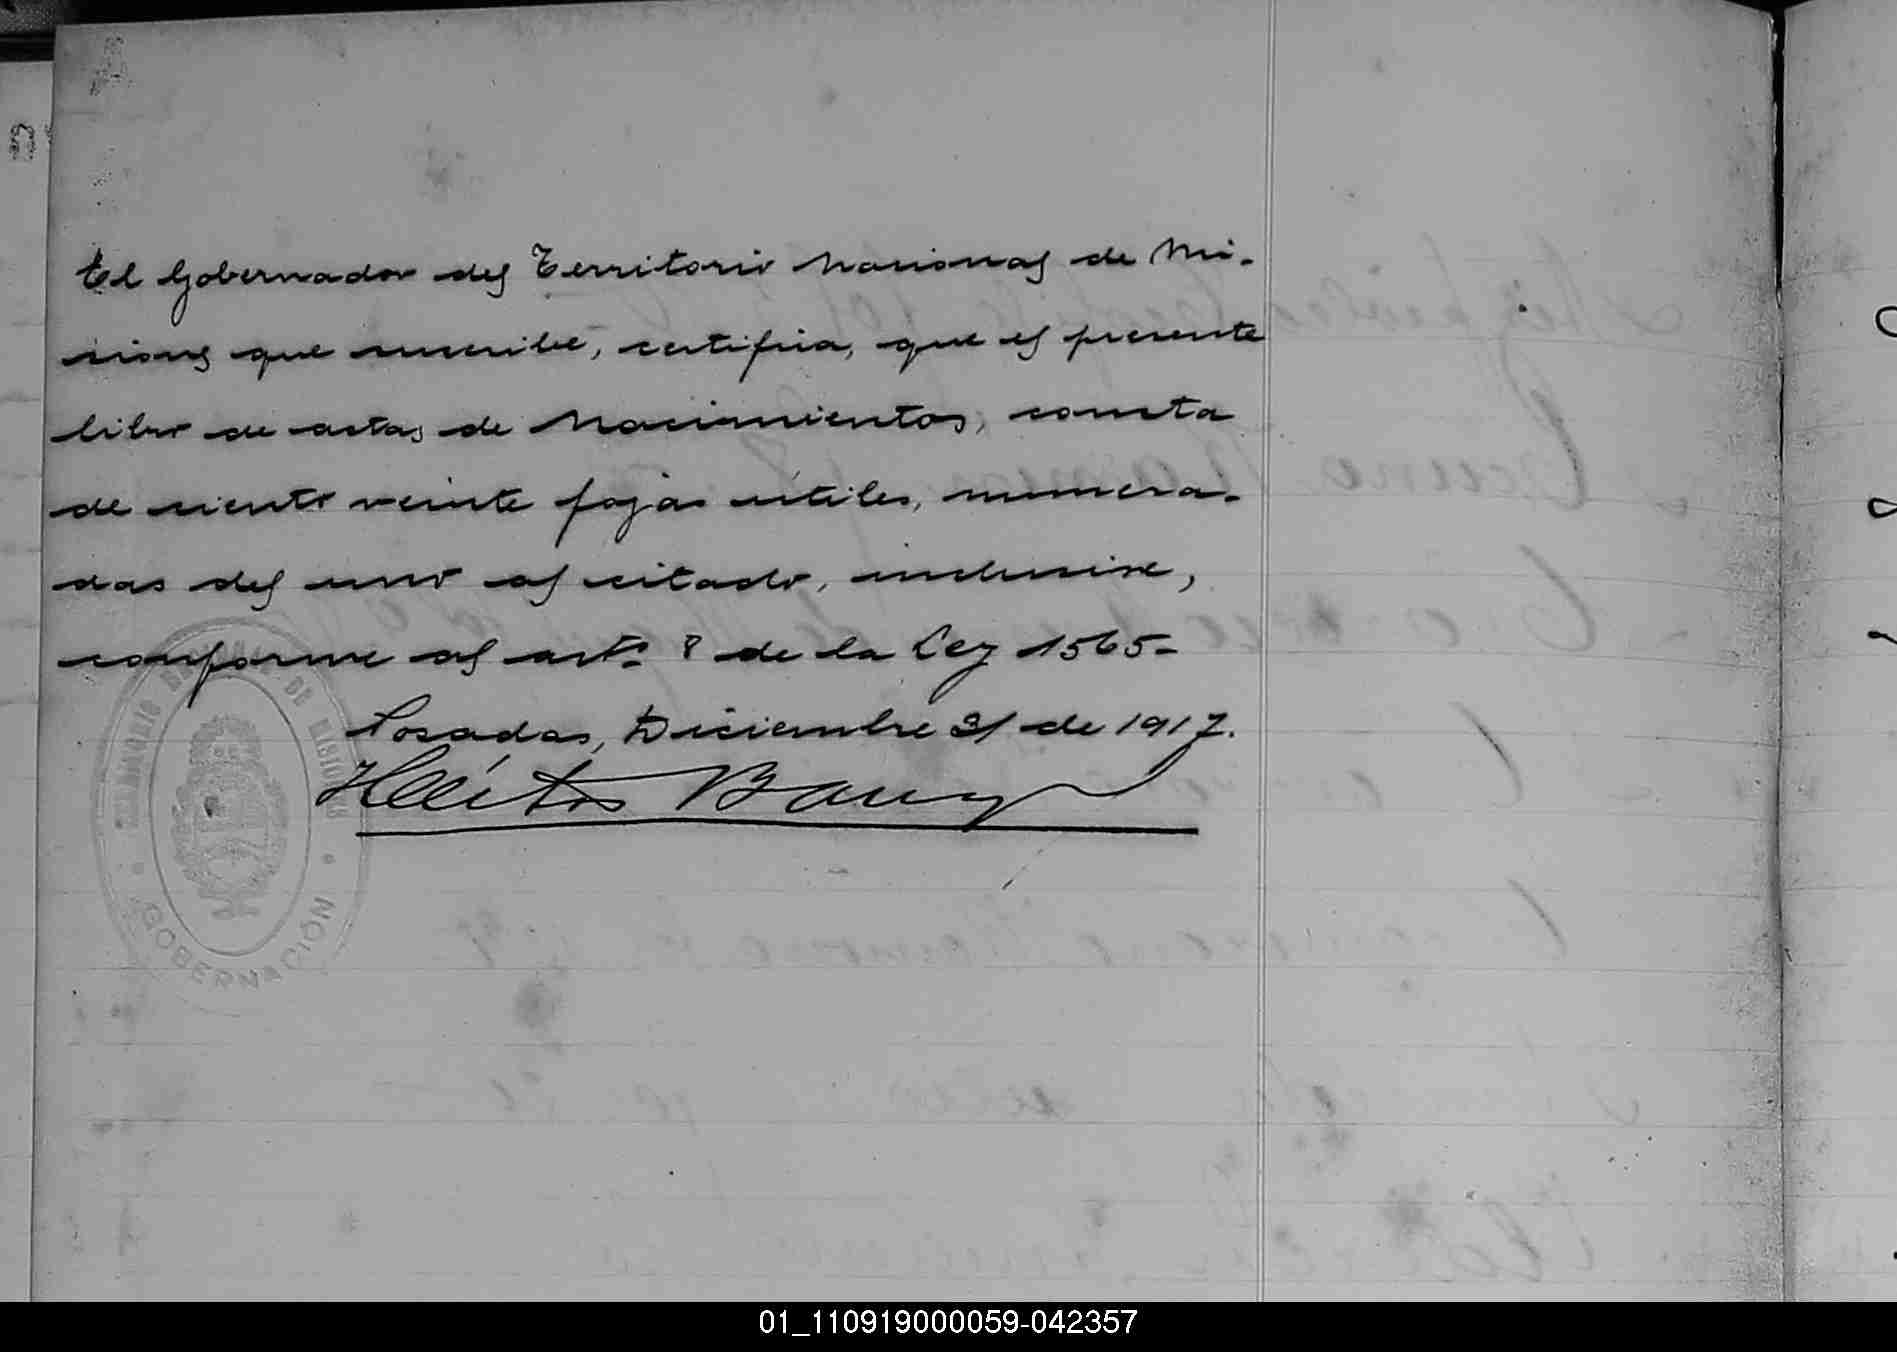 El Gobernador del Territorio Nacional de Mi-
siones que suscribe, certifica, que el presente
libro de actas de Nacimientos, consta
de ciento veinte fojas utiles, numera-
das del uno al citado, inclusive,
conforme al art. 8 de la Ley 1565-
Posadas, Diciembre 31 de 1917.
TERRITORIO NACIONAL DE MISIONES
GOBERNACIÓN
01_110919000059-042357